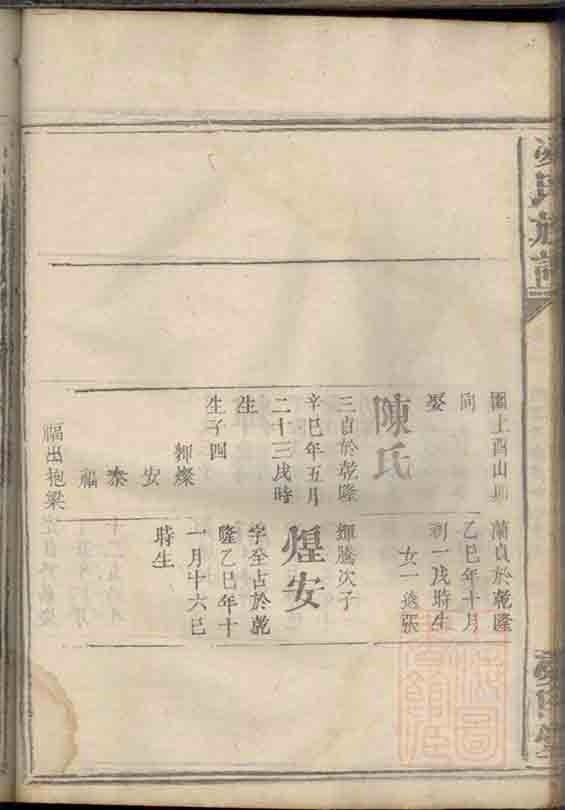 園上酉山
向
娶
陳氏
三貞於乾隆
辛巳年五月
二十三戌時
生
生子四
輝燦
安
泰
福
福出抱梁
蘭貞於乾隆
乙巳年十月
初一戌時生
女一適張
輝騰次子
煌安
字至占於乾
隆乙巳年十
一月十六巳
時生
氏族譜